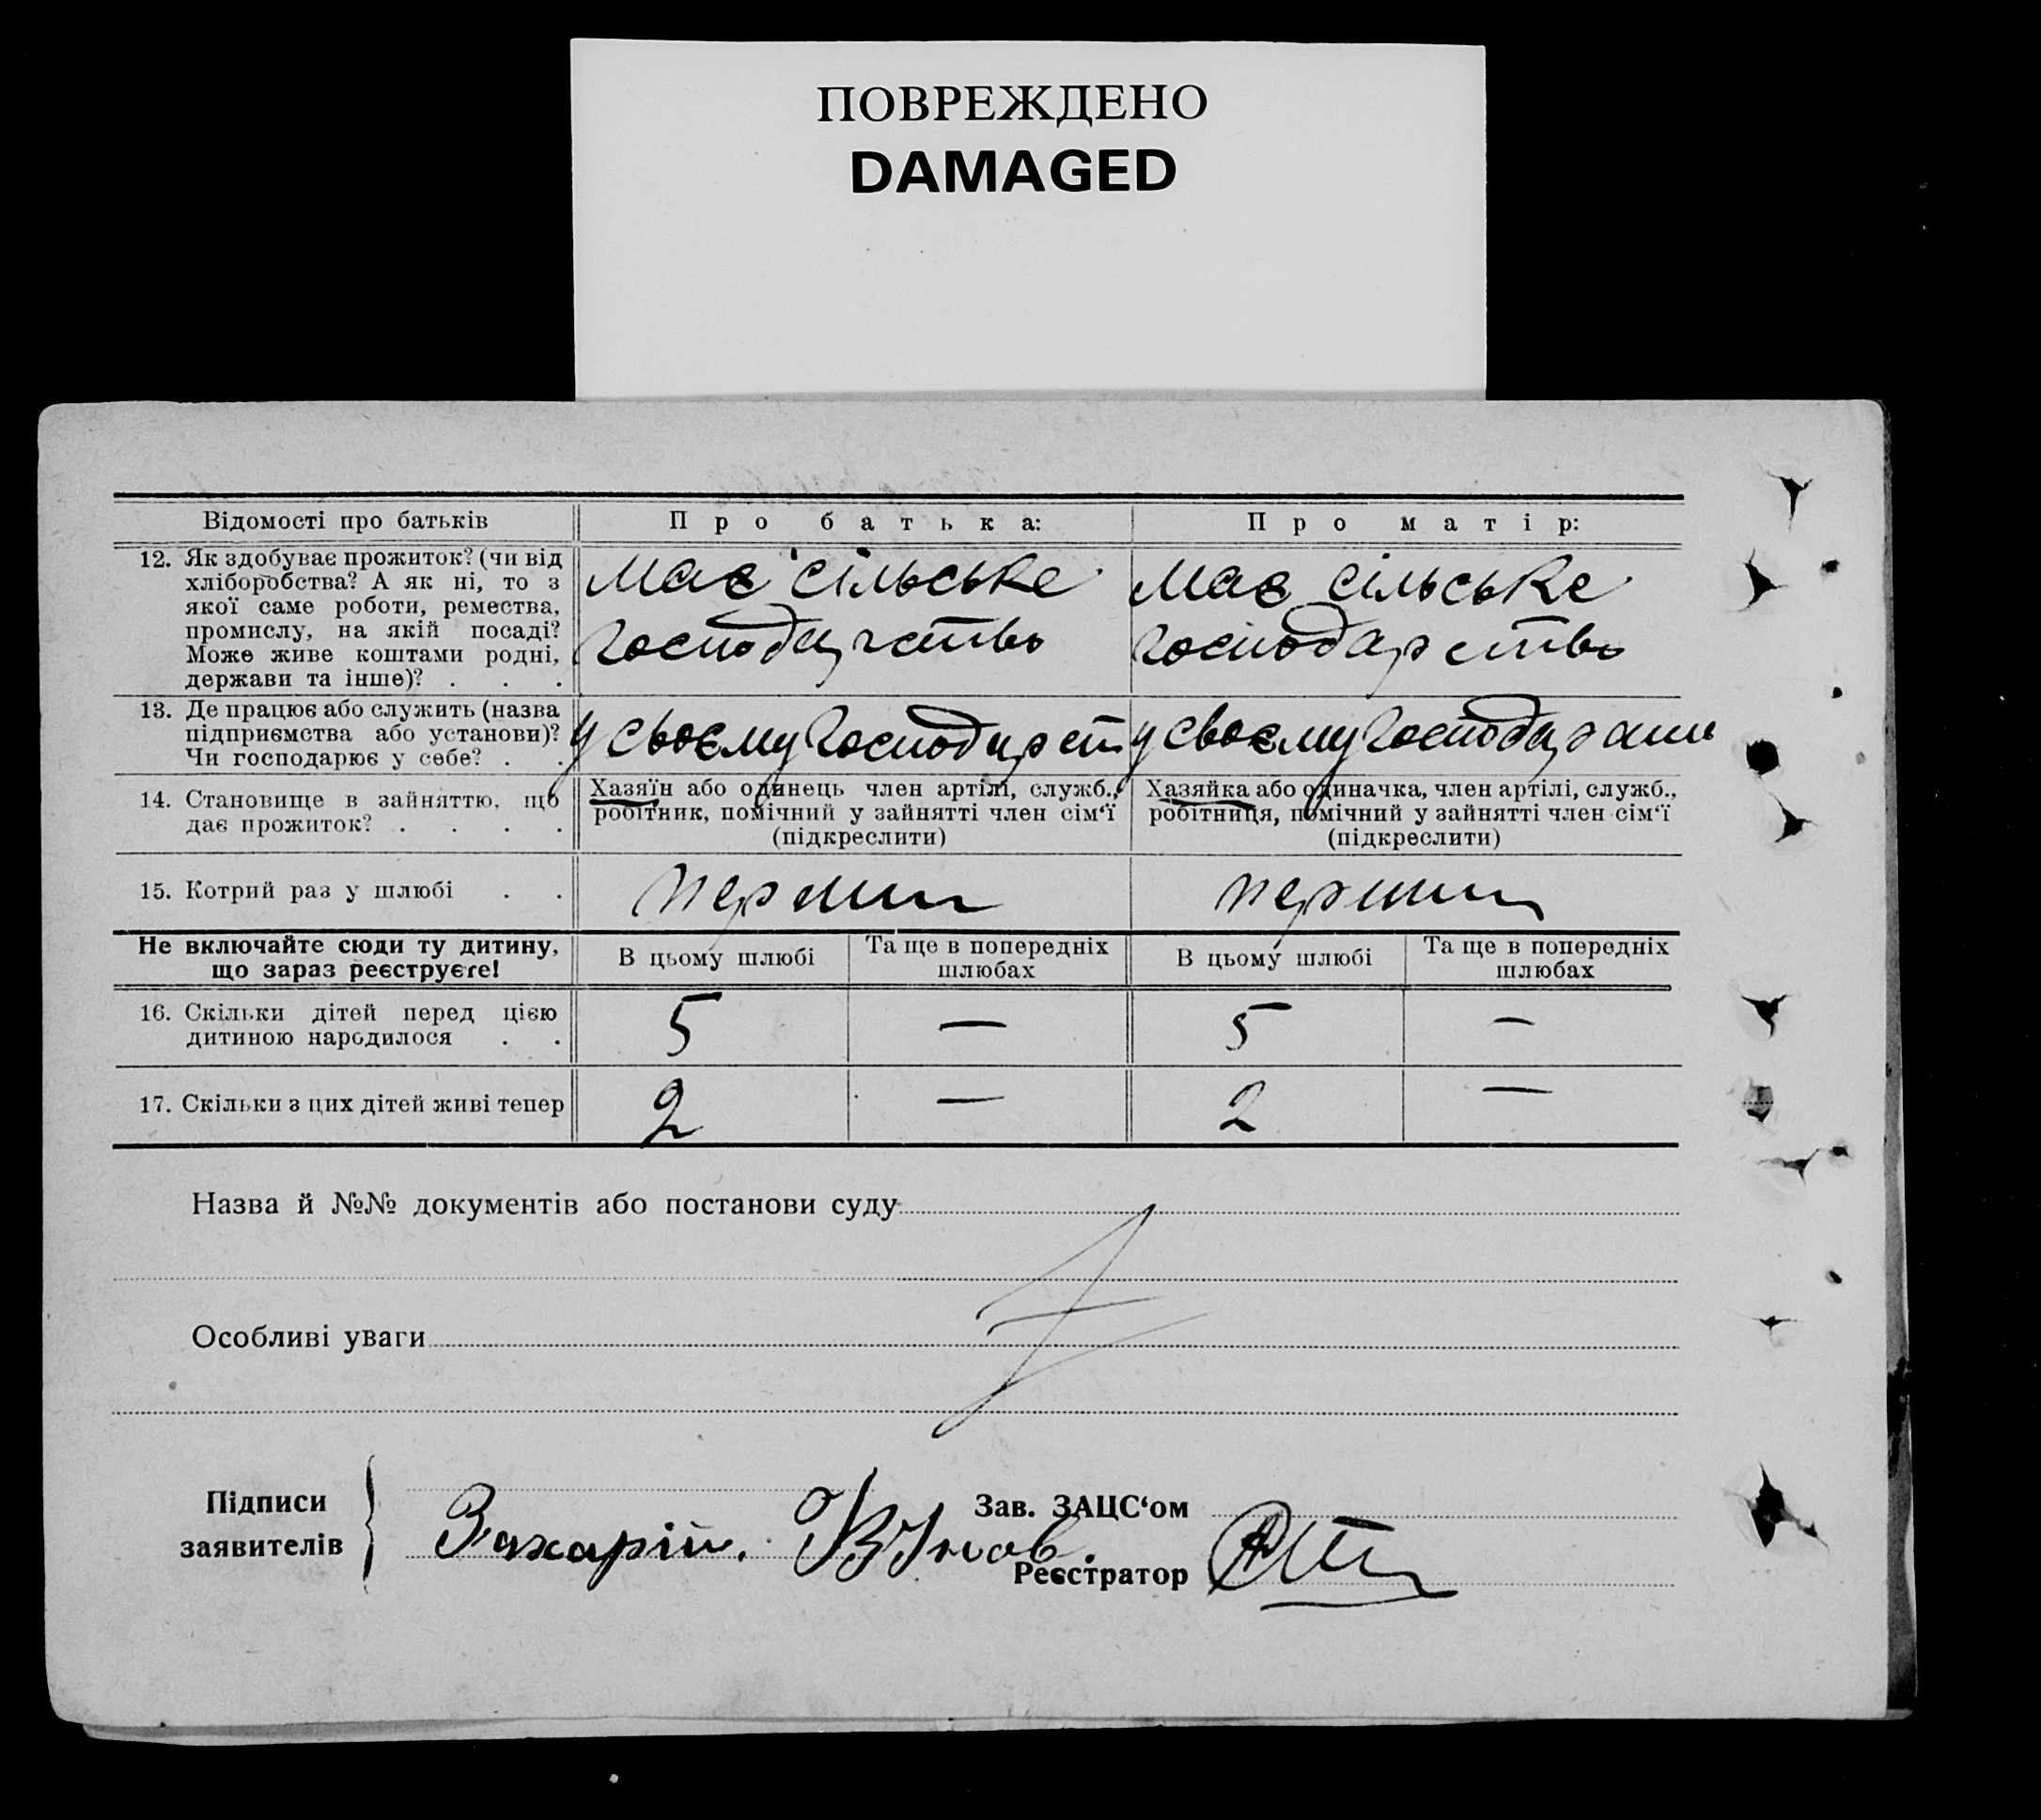 ПОВРЕЖДЕНО
DAMAGED
Відомості про батьків
Про батька:
Про матір:
12. Як здобуває прожиток? (чи від
хліборобства? А як ні, то з
якої саме роботи, ремества,
промислу, на якій посаді?
Може живе коштами родні,
держави та інше)? . . .
має сільське
господарство
має сільське
господарство
13. Де працює або служить (назва
підприємства або установи)?
Чи господарює у себе? . .
у своєму господарст
у своєму
14. Становище в зайняттю, що
дає прожиток? . . . .
Хазяїн або одинець член артілі, служб.,
робітник, помічний у зайнятті член сім‘ї
(підкреслити)
Хазяйка або одиначка, член артілі, служб.,
робітниця, помічний у зайнятті член сім‘ї
(підкреслити)
15. Котрий раз у шлюбі . .
перший
перший
Не включайте сюди ту дитину,
що зараз реєструєте!
В цьому шлюбі
Та ще в попередніх
шлюбах
В цьому шлюбі
Та ще в попередніх
шлюбах
16. Скільки дітей перед цією
дитиною народилося . .
5
—
5
—
17. Скільки з цих дітей живі тепер
2
—
2
—
Назва й №№ документів або постанови суду
Особливі уваги
Підписи
заявителів
Захарій.
Зав. ЗАЦС‘ом
Реєстратор